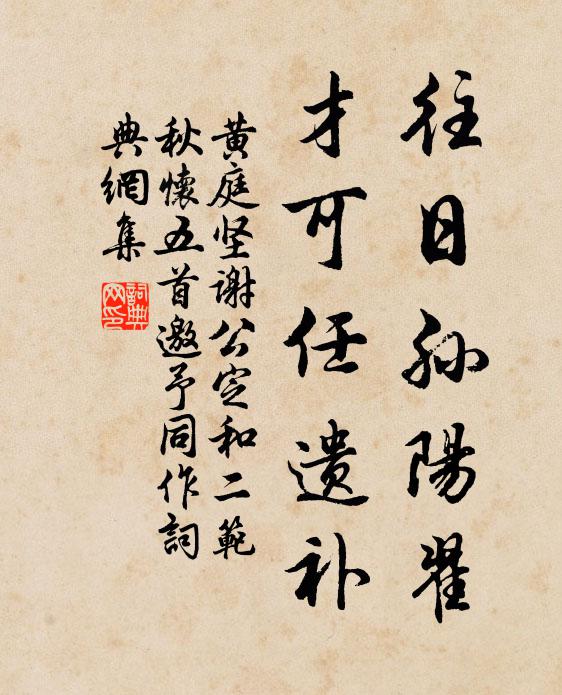 往日孙陽翟
才可任遗补
黄庭坚謝公定和二範
秋懷五首邀予同作詞
典網集
詞典
网印